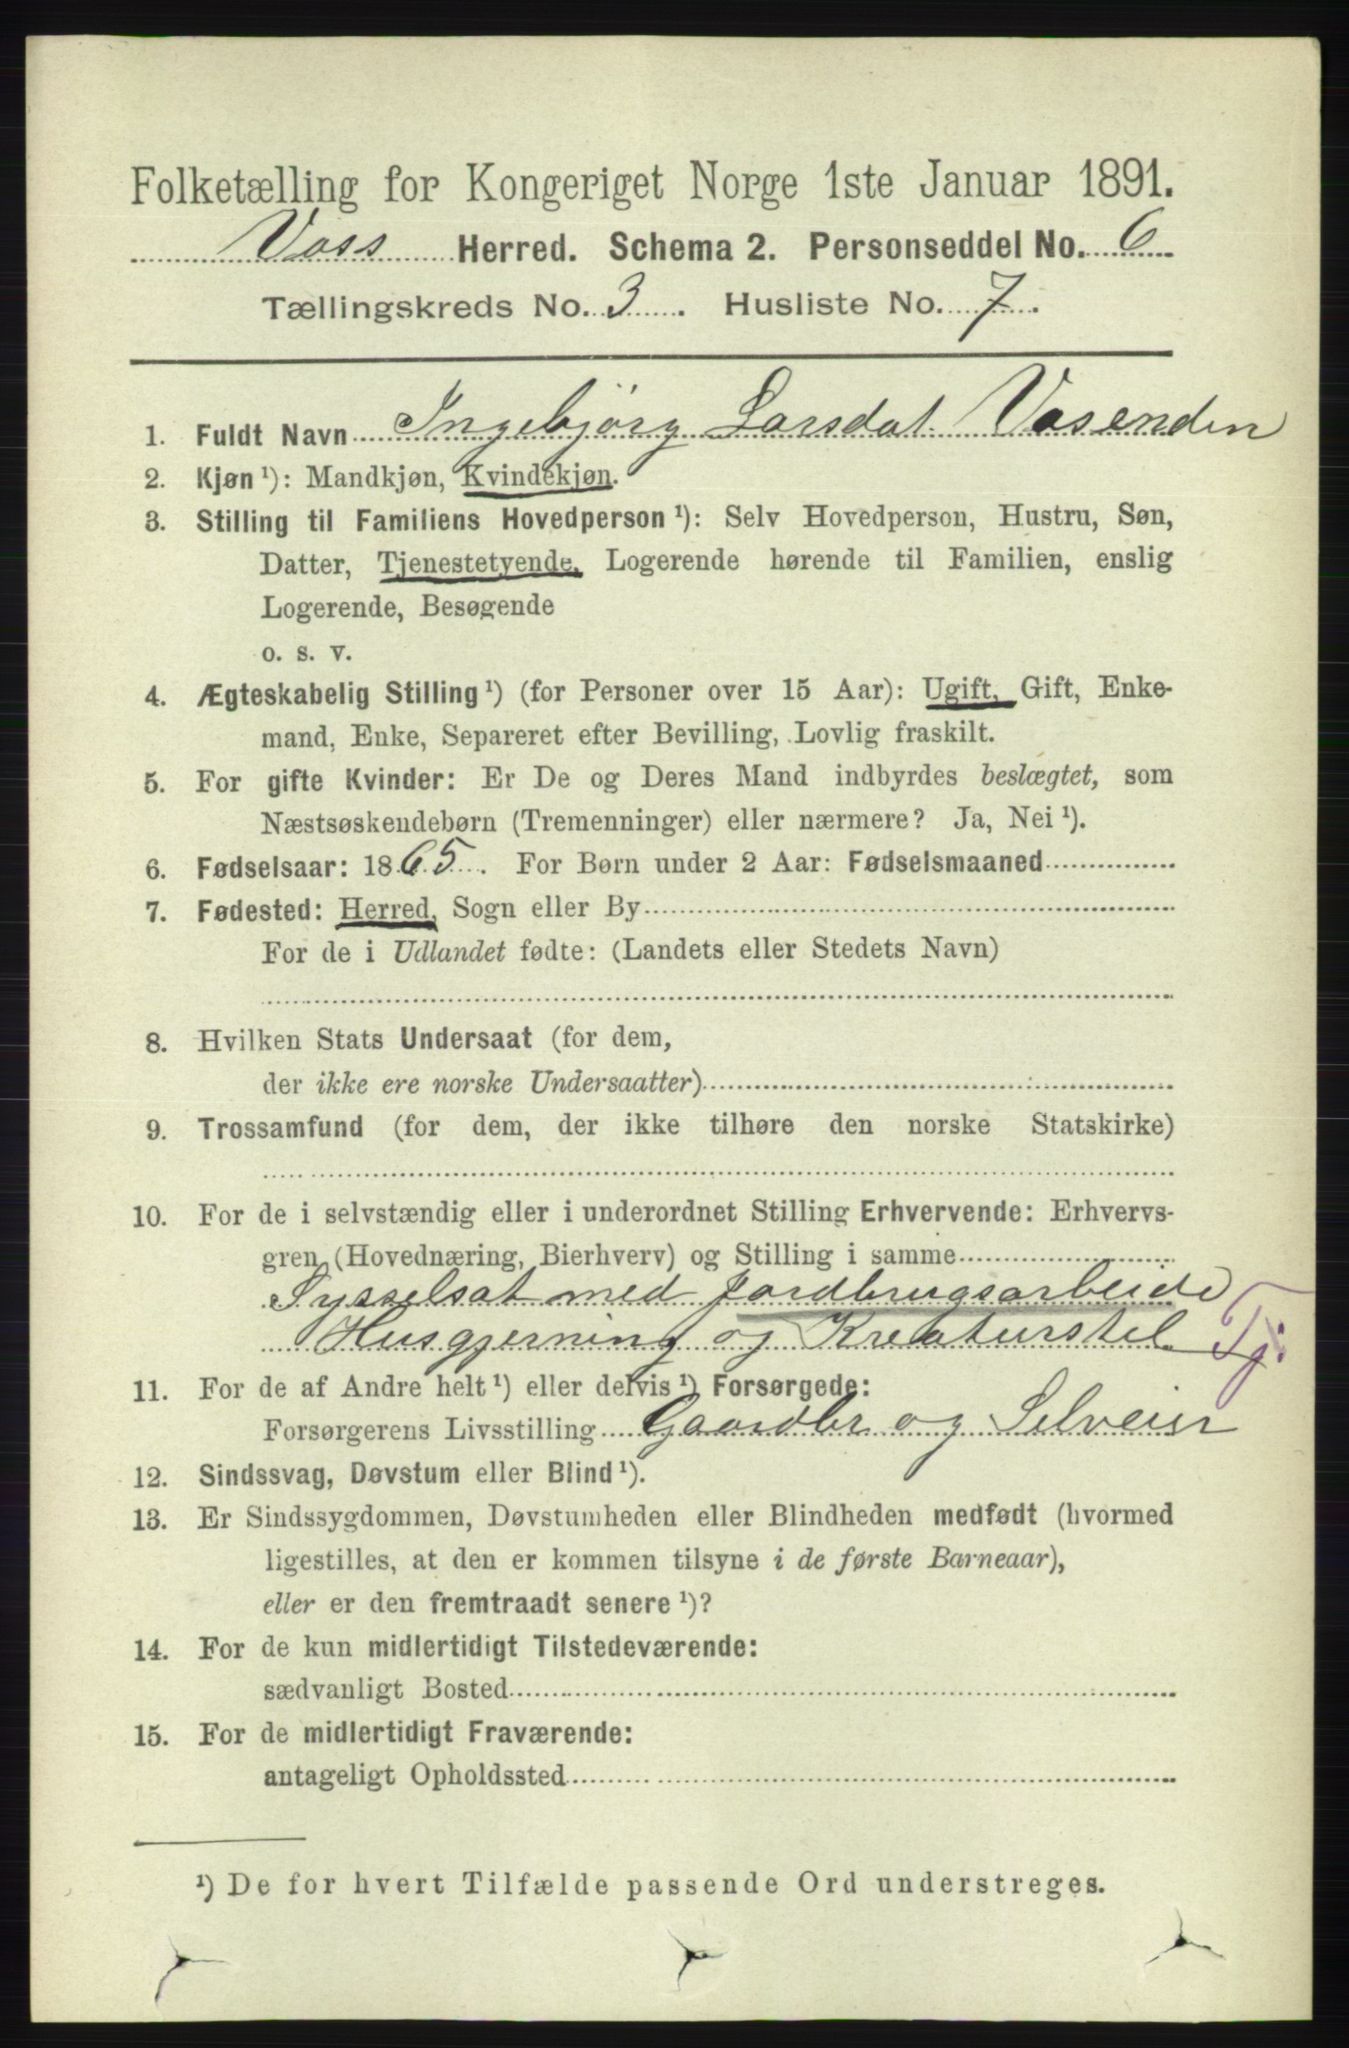 Folketælling for Kongeriget Norge 1ste Januar 1891.
Voss Herred. Schema 2. Personseddel No. 6
Tællingskreds No. 3. Husliste No. 7.
1. Fuldt Navn Ingebjörg Larsdat. Vasenden
2. Kjøn ¹): Mandkjøn, Kvindekjøn.
3. Stilling til Familiens Hovedperson ¹): Selv Hovedperson, Hustru, Søn,
Datter, Tjenestetyende, Logerende hørende til Familien, enslig
Logerende, Besøgende
o. s. v.
4. Ægteskabelig Stilling ¹) (for Personer over 15 Aar): Ugift, Gift, Enke-
mand, Enke, Separeret efter Bevilling, Lovlig fraskilt.
5. For gifte Kvinder: Er De og Deres Mand indbyrdes beslægtet, som
Næstsøskendebørn (Tremenninger) eller nærmere? Ja, Nei ¹).
6. Fødselsaar: 1865. For Børn under 2 Aar: Fødselsmaaned
7. Fødested: Herred, Sogn eller By
For de i Udlandet fødte: (Landets eller Stedets Navn)
8. Hvilken Stats Undersaat (for dem,
der ikke ere norske Undersaatter)
9. Trossamfund (for dem, der ikke tilhøre den norske Statskirke)
10. For de i selvstændig eller i underordnet Stilling Erhvervende: Erhvervs-
gren (Hovednæring, Bierhverv) og Stilling i samme
Sysselsat med Jordbrugsarbeide
Husgjerning og Kreaturstel Tj.
11. For de af Andre helt ¹) eller delvis ¹) Forsørgede:
Forsørgerens Livsstilling Gaardbr og Selveier
12. Sindssvag, Døvstum eller Blind ¹).
13. Er Sindssygdommen, Døvstumheden eller Blindheden medfødt (hvormed
ligestilles, at den er kommen tilsyne i de første Barneaar),
eller er den fremtraadt senere ¹)?
14. For de kun midlertidigt Tilstedeværende:
sædvanligt Bosted
15. For de midlertidigt Fraværende:
antageligt Opholdssted
¹) De for hvert Tilfælde passende Ord understreges.